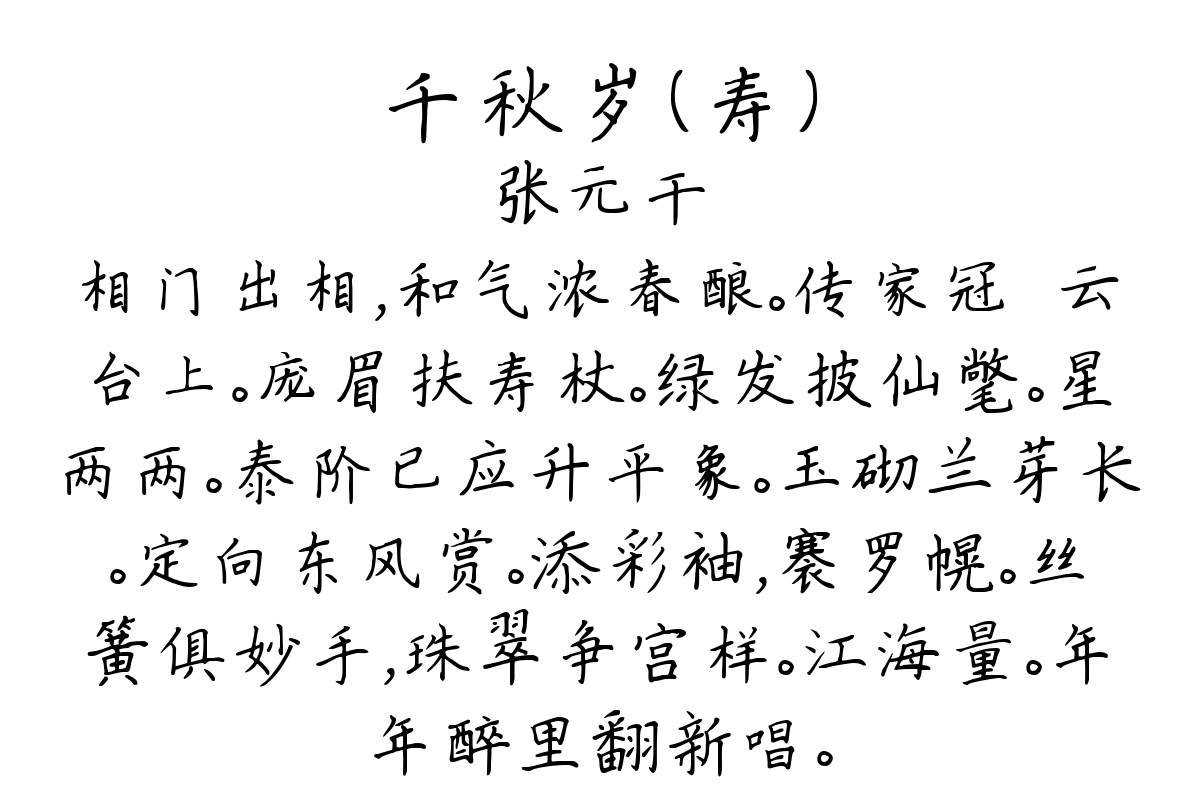 千秋岁(寿)
张元干
相门出相,和气浓春酿。传家冠 云
台上。庞眉扶寿杖。绿发披仙氅。星
两两。泰阶已应升平象。玉砌兰芽长
。定向东风赏。添彩袖,褰罗幌。丝
簧俱妙手,珠翠争宫样。江海量。年
年醉里翻新唱。